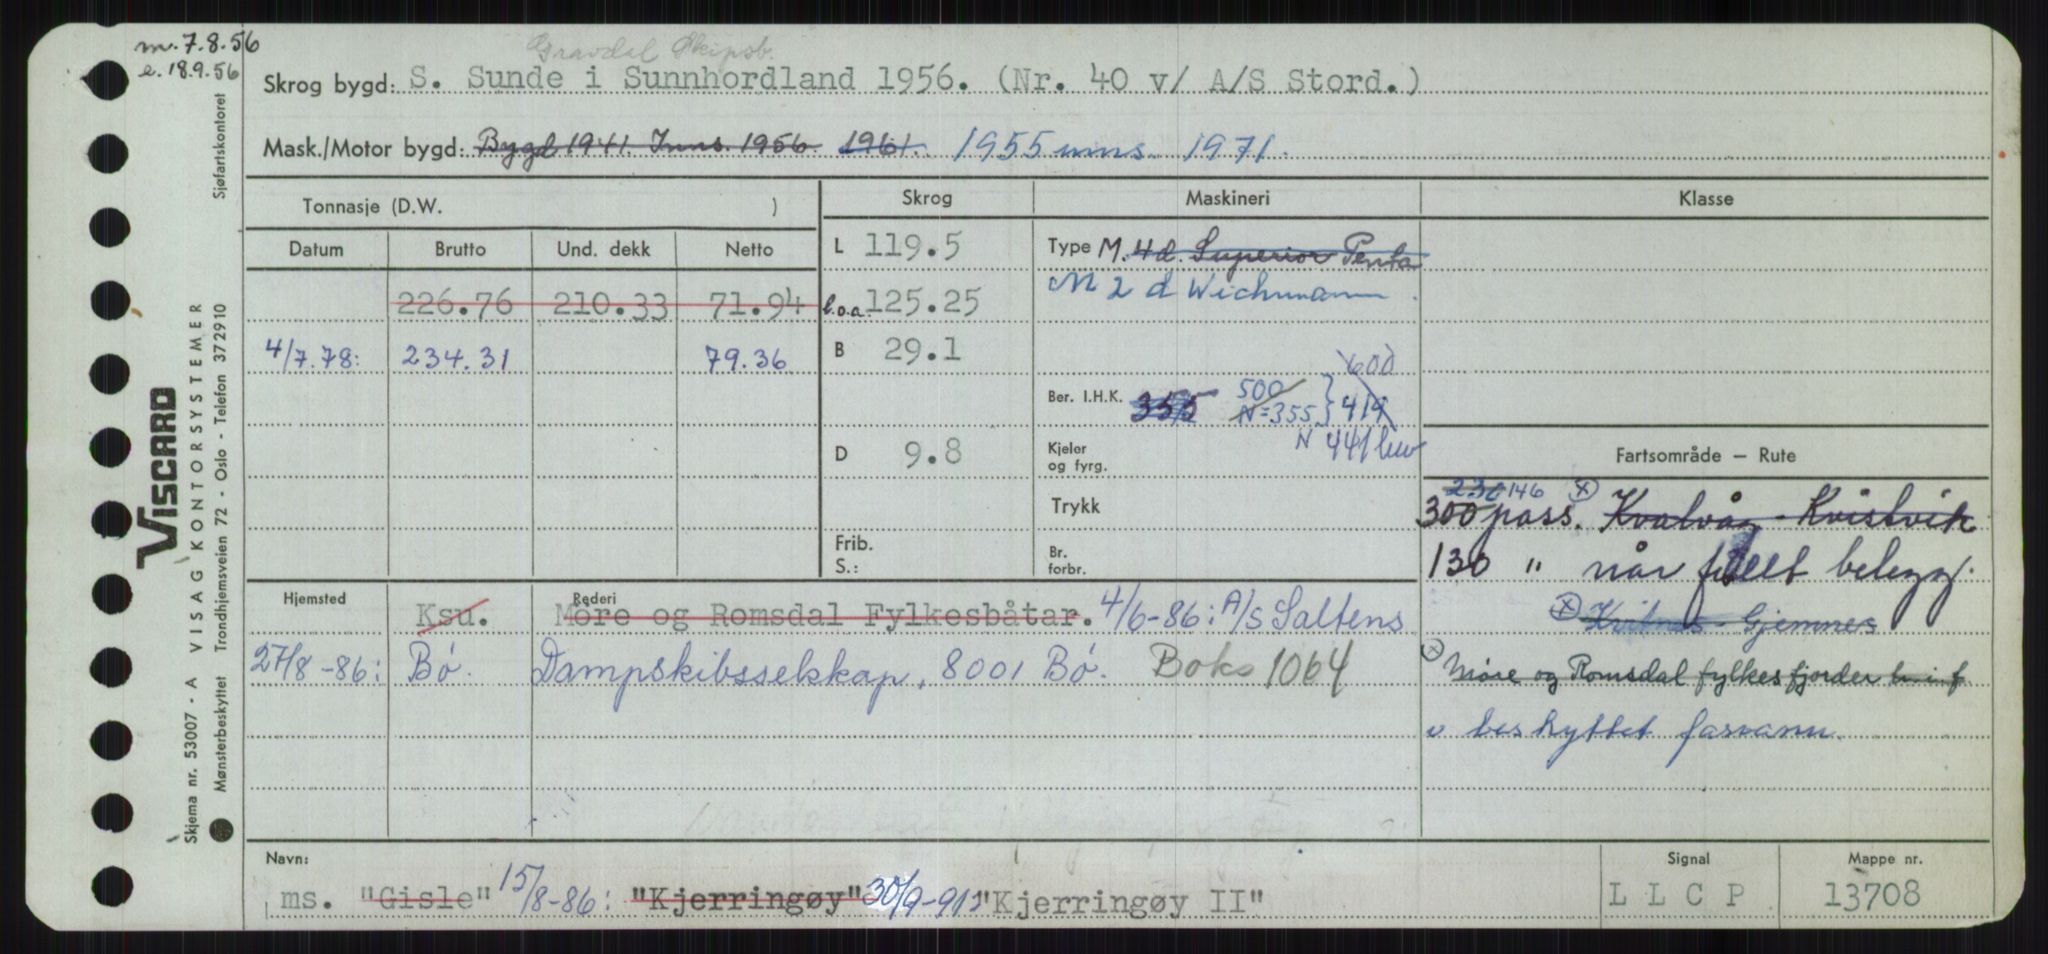 m. 7.8.56
e. 18.9.56
Gravdal Skipsb.
Skrog bygd: S. Sunde i Sunnhordland 1956. (Nr. 40 v/ A/S Stord.)
Mask./Motor bygd: Bygd 1941. Inns. 1956. 1961. 1955 inns. 1971.
Tonnasje (D.W. ) Skrog Maskineri Klasse
Datum Brutto Und. dekk Netto
L 119.5 Type M. 4 d. Superior Penta
M 2 d Wichmann.
226.76 210.33 71.94 l.o.a. 125.25
4/7.78: 234.31 79.36 B 29.1
600
Ber. I.H.K. 355 500 N=355 } 419
N 441 kw
D 9.8 Kjeler og fyrg.
Fartsområde – Rute
Trykk
230 146
300 pass. Kvalvåg - Kvistvik
Frib. S.: Br. forbr.
130 " når fullt belegg.
Kvitnes - Gjemnes
Hjemsted Rederi
Ksu. Møre og Romsdal Fylkesbåtar. 4/6-86: A/S Saltens
27/8-86: Bó. Dampskibsselskap, 8001 Bó. Boks 1064
Møre og Romsdal fylkes fjorder
v beskyttet farvann.
Navn: Signal Mappe nr.
ms. "Gisle" 15/8-86: "Kjerringøy" 30/9-91: "Kjerringøy II" LLCP 13708
Sjøfartskontoret
VISCARD
VISAG KONTORSYSTEMER
Skjema nr. 53007 - A
Mønsterbeskyttet Trondhjemsveien 72 - Oslo - Telefon 372910